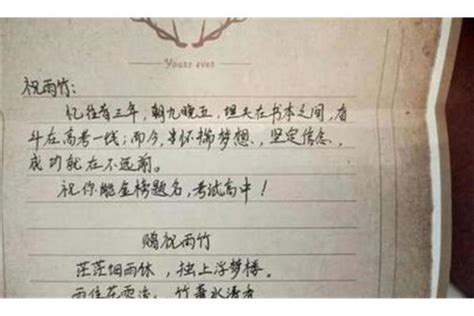 Yours ever
祝雨竹:
忆往昔三年，朝九晚五，坦夫在书本之间，奋
斗在高考一线；而今，怀揣梦想，坚定信念，
成功就在不远前。
祝你能金榜题名，考试高中！
赠祝雨竹
茫茫烟雨休，独上浮梦楼。
雨住花